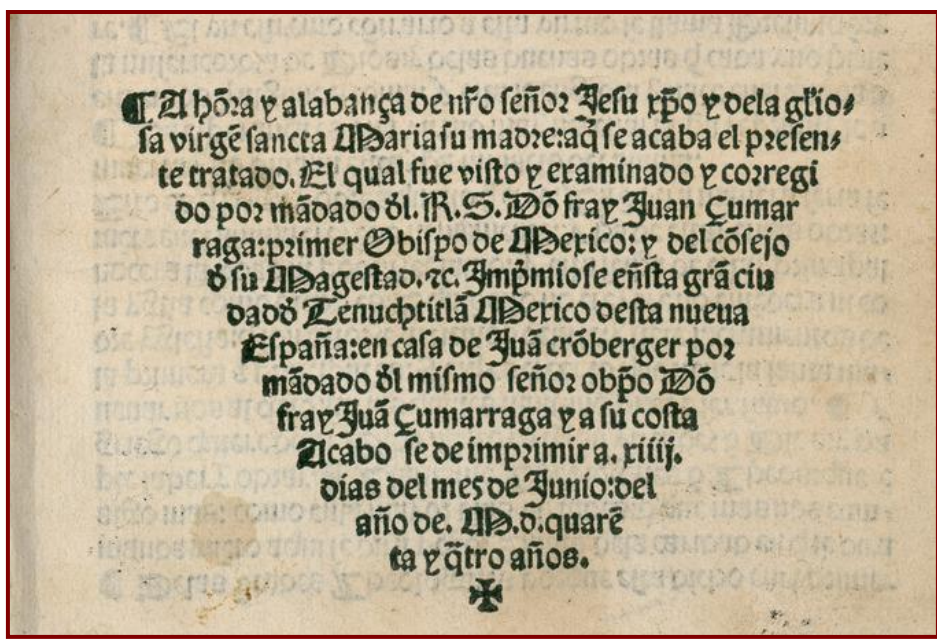 ¶ A hõra y alabança de nr̃o señor Jesu xp̃o y dela gl̃io-
sa virgẽ sancta Maria su madre: aq̃ se acaba el presen-
te tratado. El qual fue visto y examinado y corregi
do por mãdado đl. R. S. Dõ fray Juan Çumar
raga: primer Obispo de Mexico: y del cõsejo
đ su Magestad. ⁊c. Imp̃miose eñsta grã ciu
dadđ Tenuchtitlã Mexico desta nueua
España: en casa de Juã crõberger por
mãdado đl mismo señor obp̃o Dõ
fray Juã Çumarraga y a su costa
Acabo se de imprimir a. xiiij.
dias del mes de Junio: del
año de. M.d.quarẽ
ta y q̃tro años.
✠